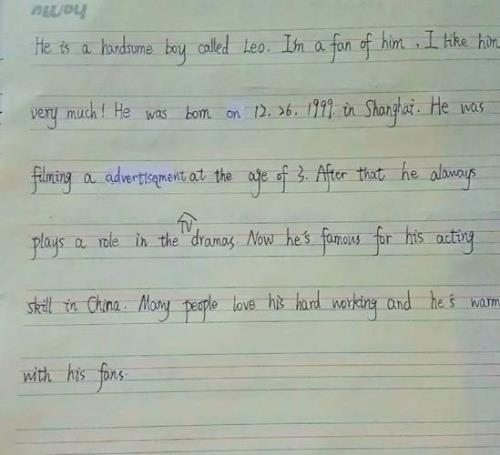 He is a handsome boy called Leo. I'm a fan of him, I like him
very much! He was born on 12. 26. 1999. in Shanghai. He was
filming a advertisement at the age of 3. After that he alaways
plays a role in the TV dramas. Now he's famous for his acting
skill in China. Many people love his hard working and he's warm
with his fans.